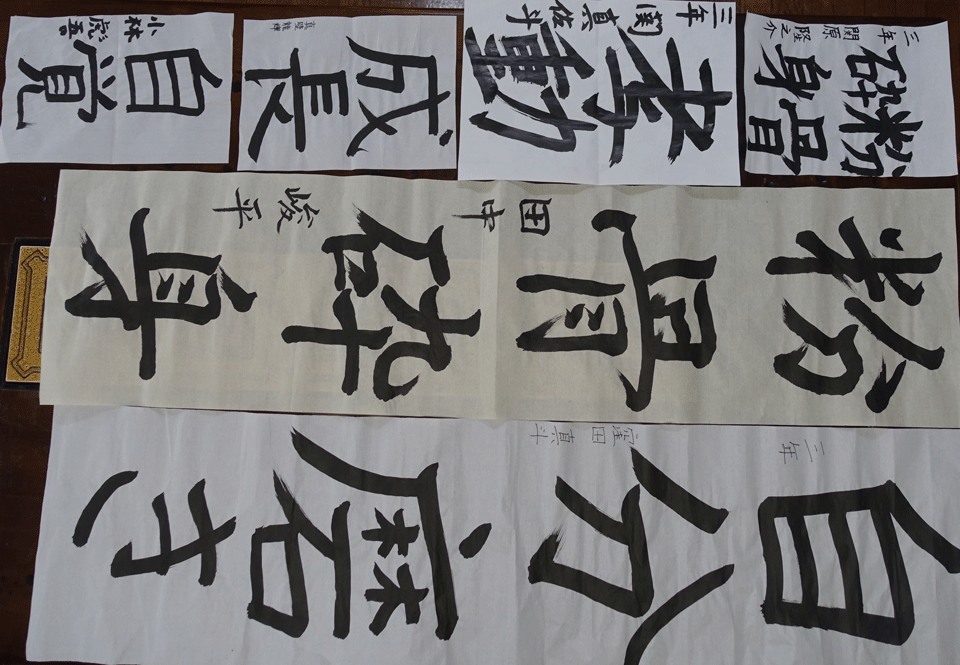 粉骨
砕身
三年
関原
隆之介
動
三年
関
真佑斗
成長
自覚
小林
粉骨砕身
田中
峻平
自分磨き
三年
窪田真斗